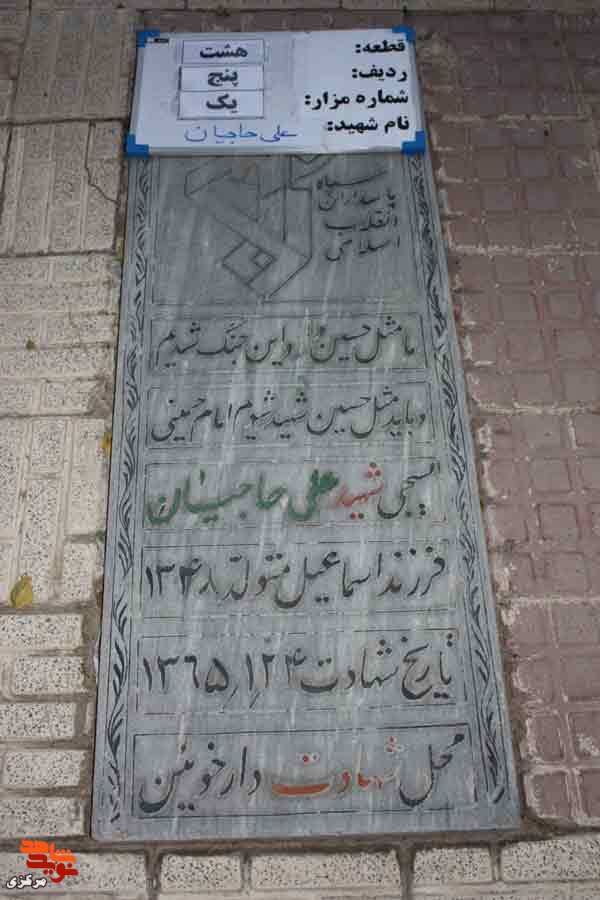 قطعه: هشت
ردیف: پنج
شماره مزار: یک
نام شهید: علی حاجیان
سپاه
پاسداران
انقلاب
اسلامی
ما مثل حسین وارد این جنگ شدیم
و باید مثل حسین شهید شویم امام خمینی
بسیجی شهید علی حاجیان
فرزند اسماعیل متولد ۱۳۴۸
تاریخ شهادت ۱۳۶۵/۱/۲۴
محل شهادت دارخوئین
نوید شاهد
مرکزی